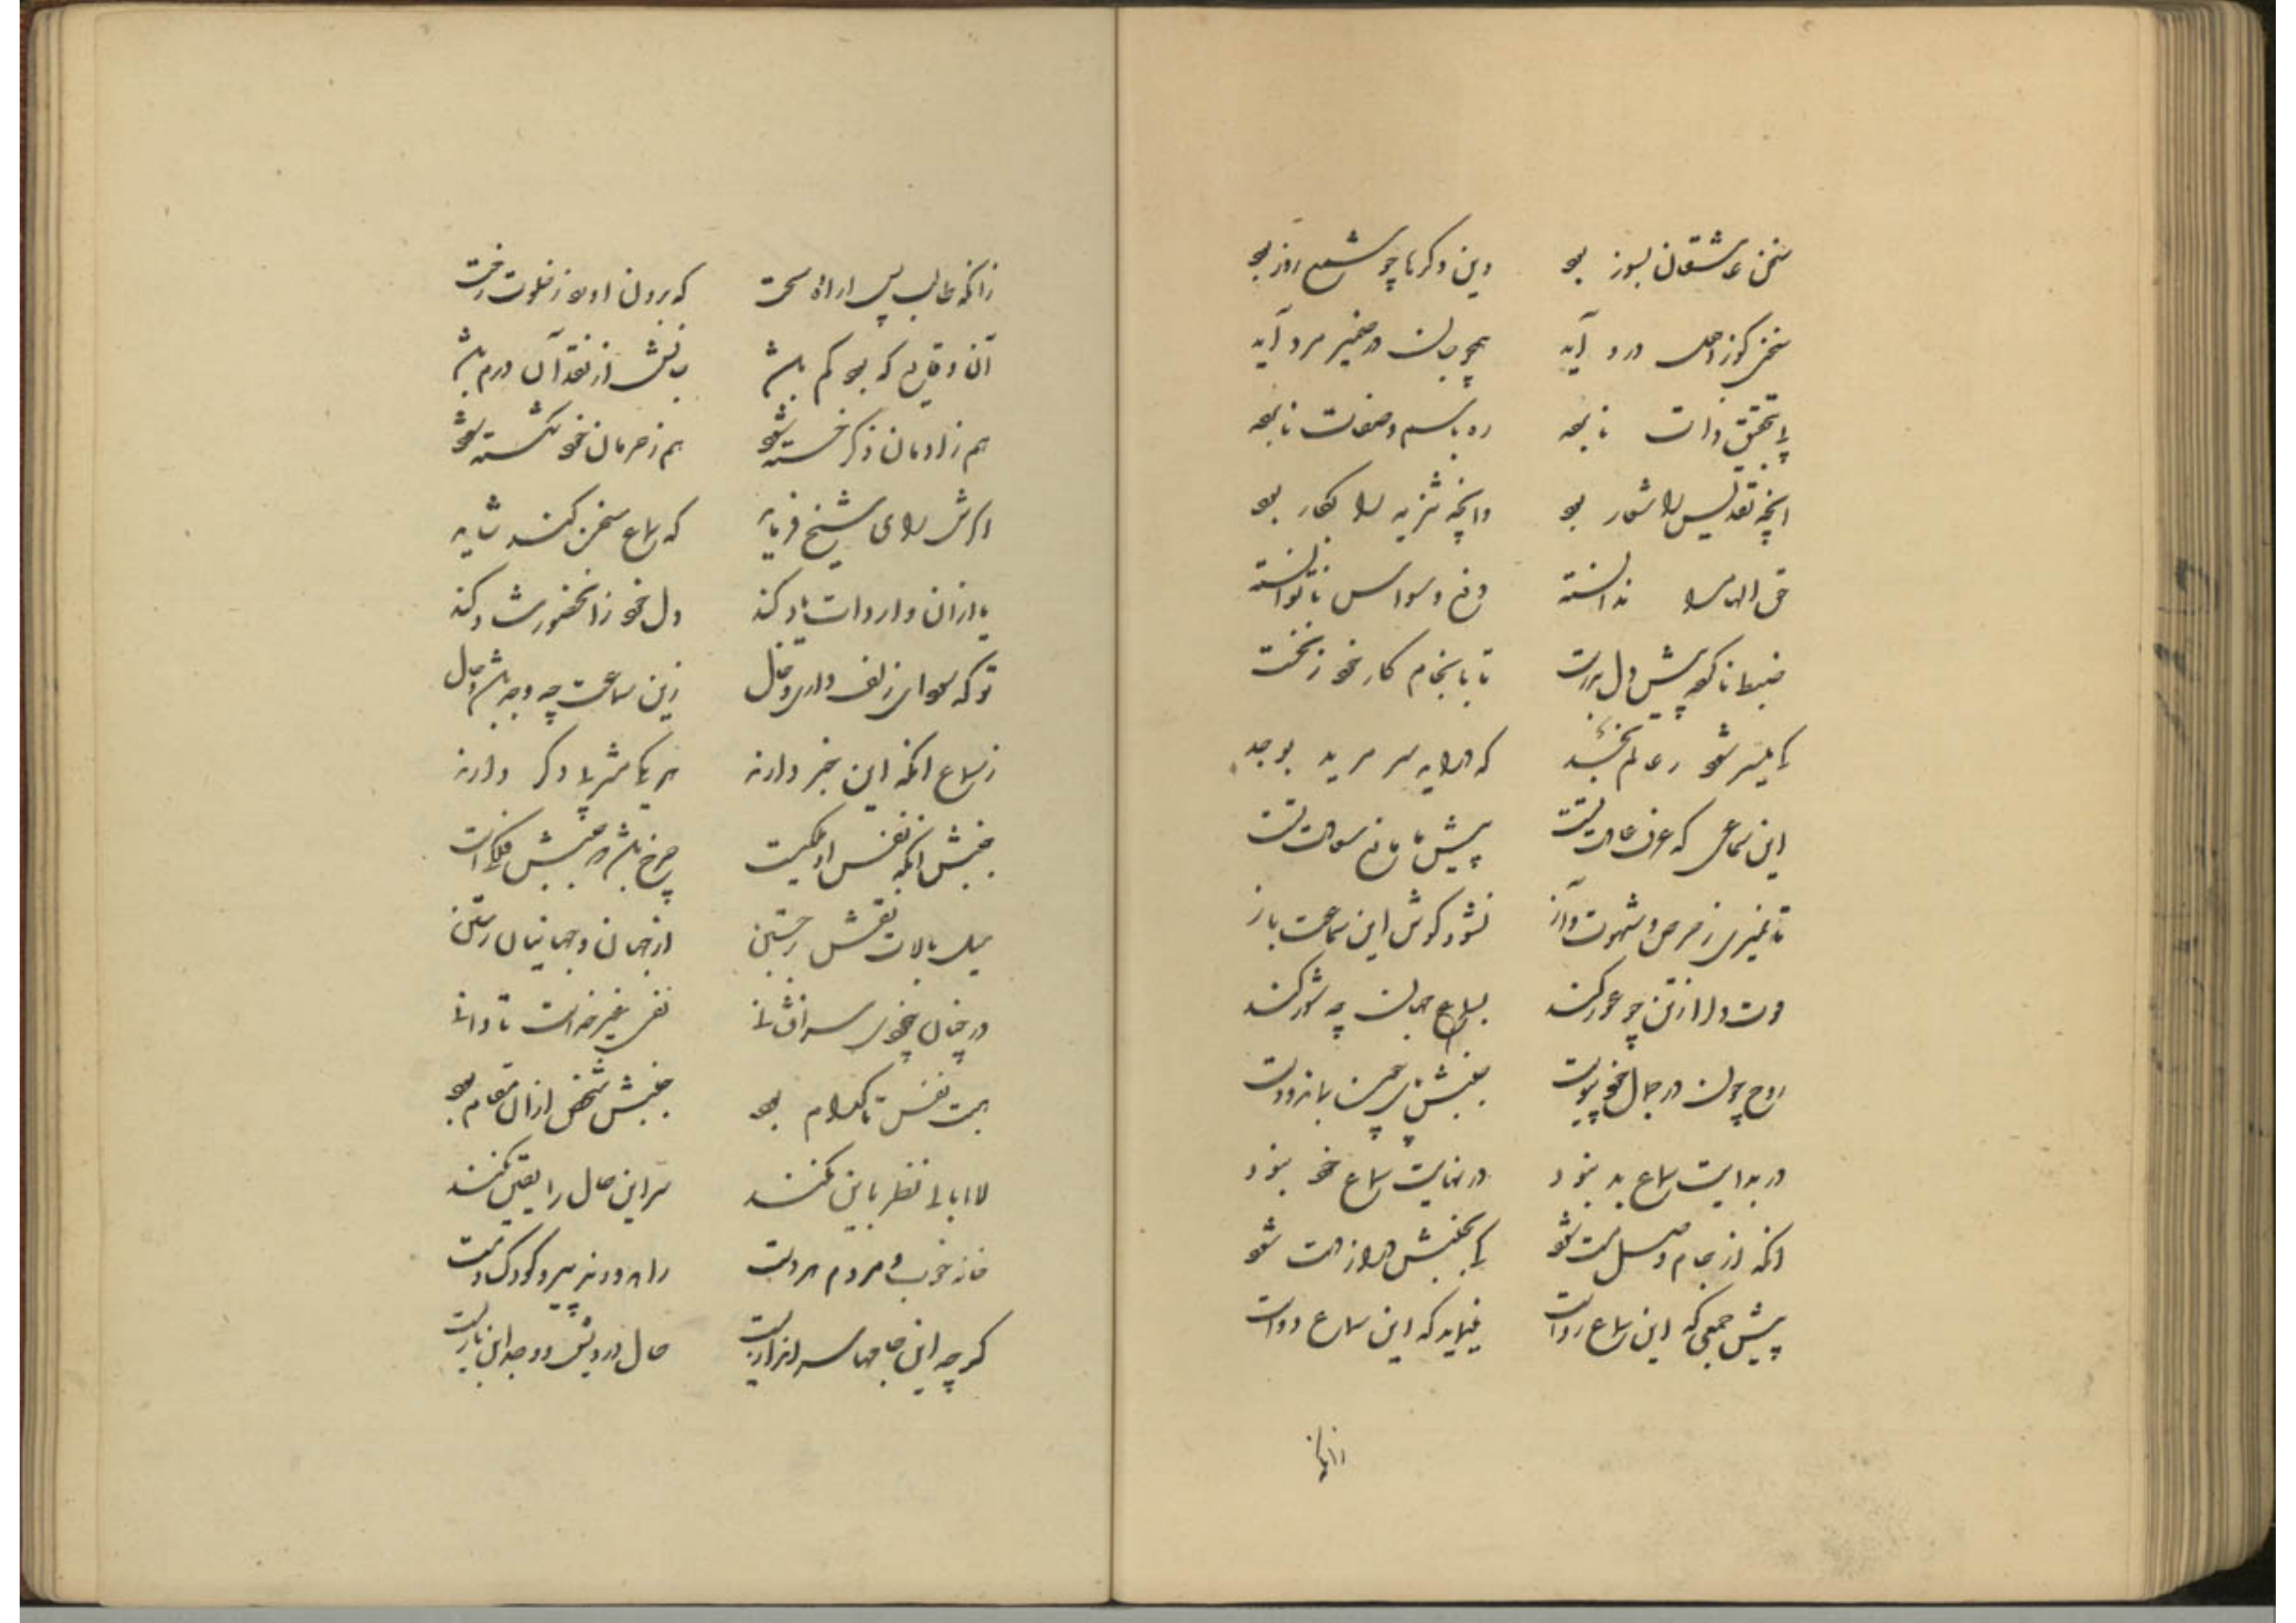 سخن عاشقان بسوز بود    وین دگرها چو شمع روز بود
سخنی کوز اصل درد آید    همچو جان در ضمیر مرد آید
پی تحقیق ذات نابوده    ره باسم و صفات نابوده
انچه تقدیس را شعار بود    وانچه تنزیه را بکار بود
حق الهام را ندانسته    دفع وسواس ناتوانسته
ضبط ناکرده پیش دل بدرست    تا بانجام کار خود ز نخست
کی میسر شود
این سماعی که عرف و عادتست    پیش ما مانع سعادتست
تا نمیری ز حرص و شهوت و آز    نشود گوش این سماعت باز
قوت دل را ز تن چو عور کند    بسماع جهان چه شور کند
روح چون در جمال خود پیوست    جنبش
در بدایت سماع بد نبود    در نهایت سماع خود نبود
انکه از جام وصل مست شود    کی بجنبش دراز دست شود
پیش جمعی که این سماع رواست    بنماید که این سماع دواست
زانکه
زانکه طالب پس از ارادهٔ سخت    که برون اورد ز خلوت رخت
آن وقایع که بود کم باشد    جانش از فقد آن درم باشد
هم ز ادمان ذکر خسته شود    هم ز حرمان خود شکسته شود
اگرش رای شیخ فرماید    که سماع سخن کند شاید
یاد ازان واردات یاد کند    دل خود زان حضور شاد کند
تو که سودای زلف داری و خال    زین سماعت چه وجد باشد و حال
ز سماع انکه این خبر دارند    هر یکی مشربی دگر دارند
جنبش انکه نفس او ملکیست    چرخ باشد که جنبش فلکیست
میل بالاست نقش برجستن    از جهان و جهانیان رستن
در چنان بیخودی سرافشانی    نفی غیر خداست تا دانی
هست نفس تا کدام بود    جنبش شخص ازان مقام بود
لاابالی نظر باین نکند    سر این حال را یقین نکند
خانه خوب و مردم مردست    راه دور و نه پیر و کودک و مست
گرچه این جامها سراندازیست    حال درویش و وجد این بازیست